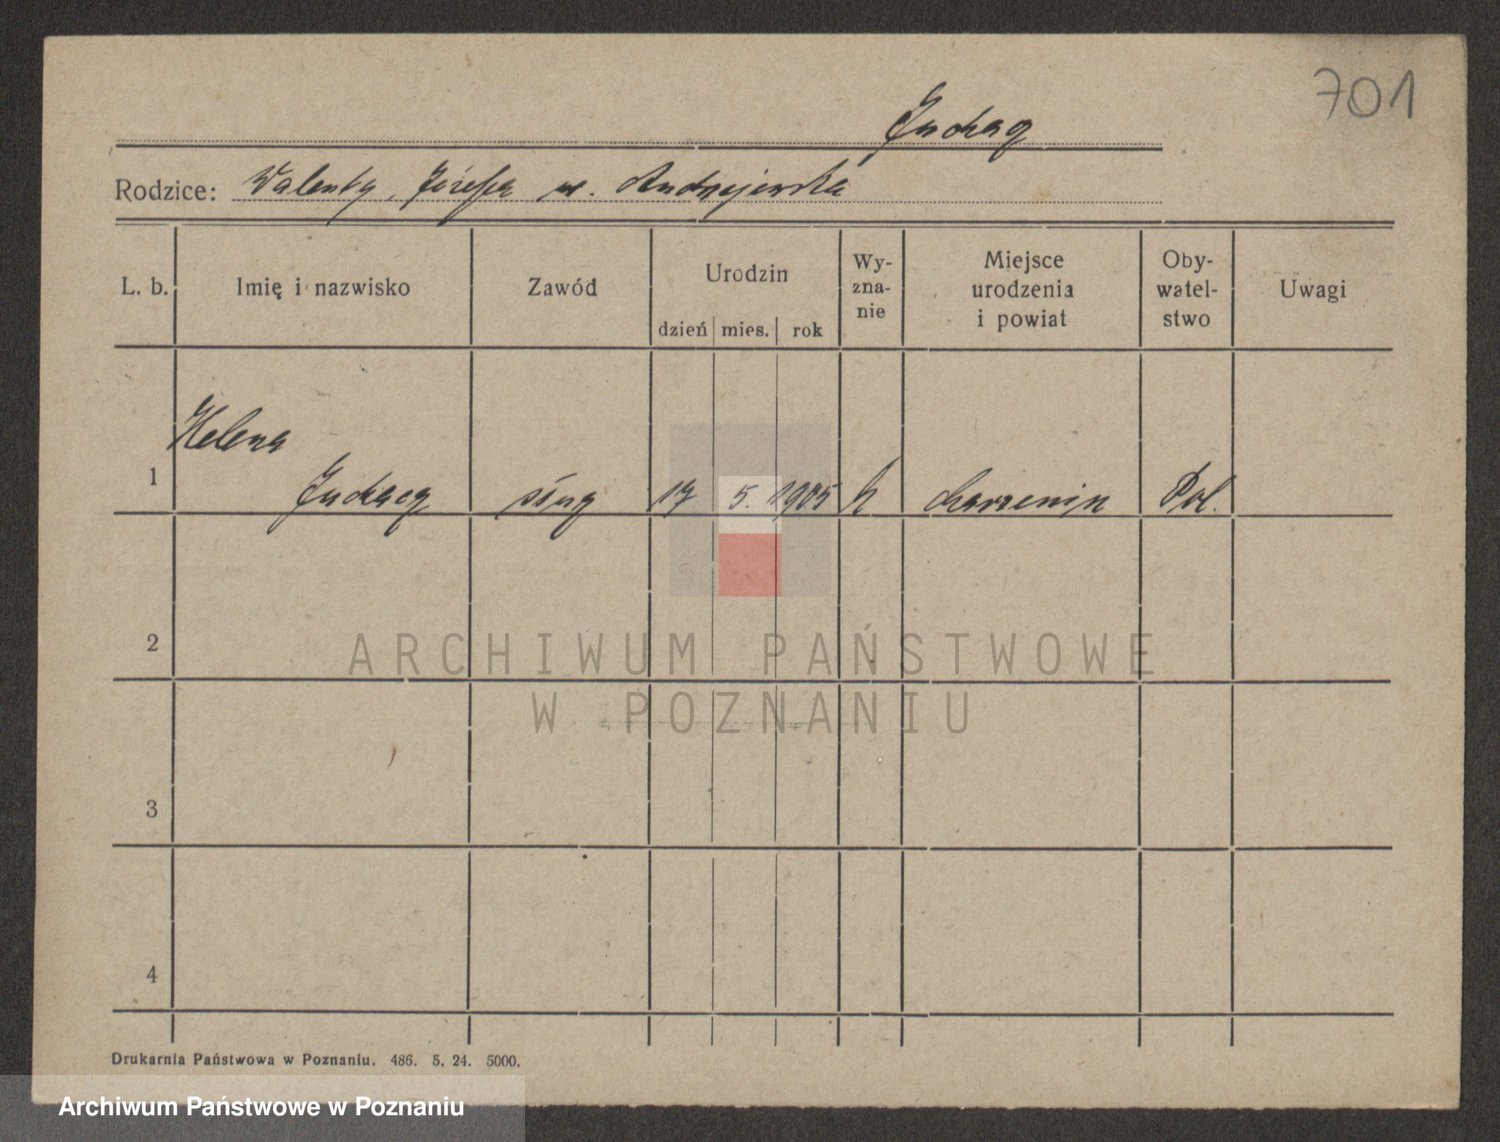 701
Rodzice: Walenty, Józefa
L. b.
Imię i nazwisko
Zawód
Urodzin
dzień mies. rok
Wy-
zna-
nie
Miejsce
urodzenia
i powiat
Oby-
watel-
stwo
Uwagi
1
Helena
służ 17 5. 1905 k Pol.
2
3
4
ARCHIWUM PAŃSTWOWE
W POZNANIU
Drukarnia Państwowa w Poznaniu. 486. 5. 24. 5000.
Archiwum Państwowe w Poznaniu